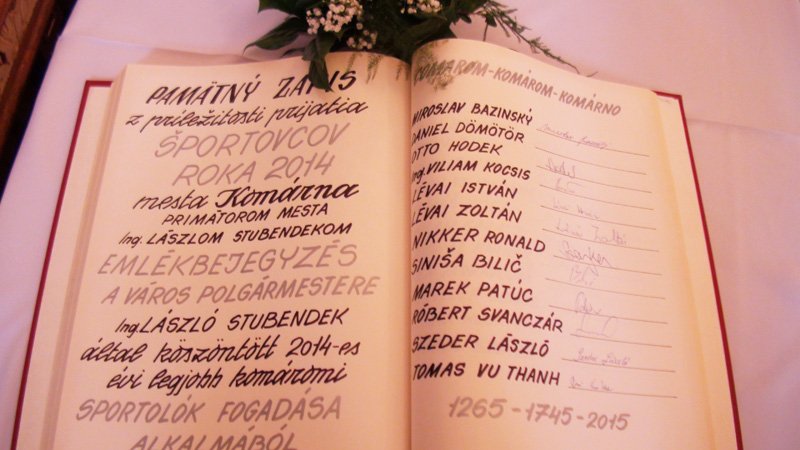 PAMÄTNÝ ZÁPIS
z príležitosti prijatia
ŠPORTOVCOV
ROKA 2014
mesta Komárna
PRIMÁTOROM MESTA
Ing. LÁSZLOM STUBENDEKOM
EMLÉKBEJEGYZÉS
A VÁROS POLGÁRMESTERE
Ing. LÁSZLÓ STUBENDEK
által köszöntött 2014-es
évi legjobb komáromi
SPORTOLÓK FOGADÁSA
ALKALMÁBÓL
COMAROM-KOMÁROM-KOMÁRNO
MIROSLAV BAZINSKÝ
DANIEL DÖMÖTÖR
OTTO HODEK
Ing. VILIAM KOCSIS
LÉVAI ISTVÁN
LÉVAI ZOLTÁN
NIKKER RONALD
SINIŠA BILIČ
MAREK PATÚC
RÓBERT SVANCZÁR
SZEDER LÁSZLÓ
TOMAS VU THANH
1265-1745-2015